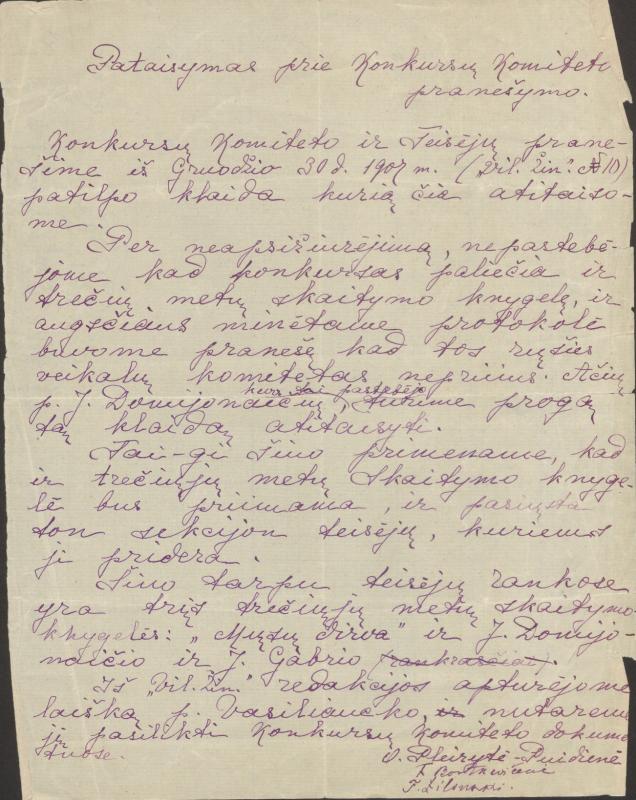 Pataisymas prie Konkursų Komiteto
pranešymo.
Konkursų Komiteto ir Teisėjų prane-
šime iš Gruodžio 30 d. 1907 m. („Vil. Žin." № 10)
patilpo klaida kurią čia atitaiso-
me.
Per neapsižiurėjimą, nepastebė-
jome kad konkursas paliečia ir
trečių metų skaitymo knygelę, ir
augsčiaus minėtame protokolė
buvome pranešę kad tos rųšies
veikalų komitetas nepriims. Ačių
kurs tai pastebėjo
p. J. Domijonaičių, turime progą
tą klaidą atitaisyti.
Tai-gi šiuo primename, kad
ir trečiųjų metų skaitymo knyge-
lė bus priimama, ir pasiųsta
ton sekcijon teisėjų, kuriems
ji pridera.
Šiuo tarpu teisėjų rankose
yra trįs trečiųjų metų skaitymo
knygelės: „Mųsų Dirva" ir J. Domijo-
naičio ir J. Gabrio (rankraščiai).
Iš „Vil. Žin." redakcijos apturėjome
laišką p. Vasiliaucko, ir nutarėme
jį pasilikti Konkursų Komiteto dokume
tuose.
O. Pleirytė-Puidienė